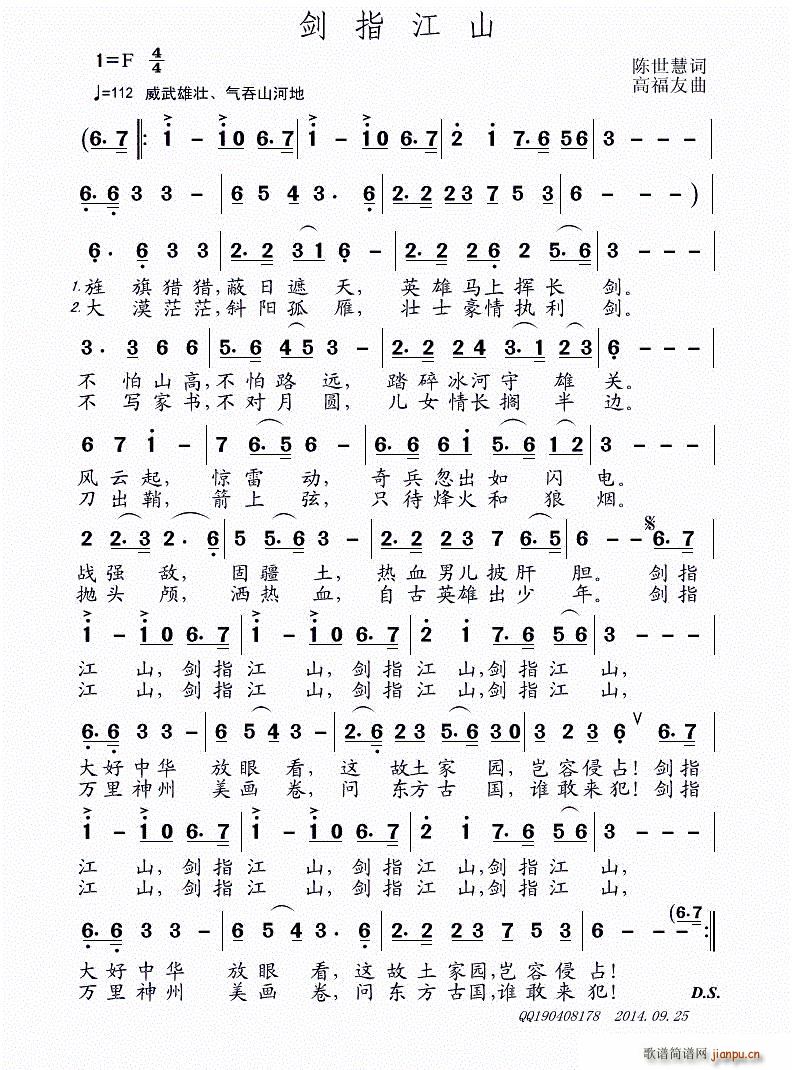 剑指江山
1=F 4/4
陈世慧词
♩=112 威武雄壮、气吞山河地
高福友曲
(6. 7 ‖: 1 - 1 0 6. 7 | 1 - 1 0 6. 7 | 2 1 7. 6 5 6 | 3 - - - |
6. 6 3 3 - | 6 5 4 3. 6 | 2. 2 2 3 7 5 3 | 6 - - - ) |
6. 6 3 3 | 2. 2 3 1 6 - | 2. 2 2 6 2 5. 6 | 3 - - - |
1. 旌旗猎猎,蔽日遮天, 英雄马上挥长剑。
2. 大漠茫茫,斜阳孤雁, 壮士豪情执利剑。
3. 3 6 6 | 5. 6 4 5 3 - | 2. 2 2 4 3. 1 2 3 | 6 - - - |
不怕山高,不怕路远, 踏碎冰河守雄关。
不写家书,不对月圆, 儿女情长搁半边。
6 7 1 - | 7 6. 5 6 - | 6. 6 6 1 5. 6 1 2 | 3 - - - |
风云起, 惊雷动, 奇兵忽出如闪电。
刀出鞘, 箭上弦, 只待烽火和狼烟。
2 2. 3 2. 6 | 5 5. 6 3 - | 2. 2 2 3 7 6. 5 | 6 - - 6. 7 |
战强敌, 固疆土, 热血男儿披肝胆。剑指
抛头颅, 洒热血, 自古英雄出少年。剑指
1 - 1 0 6. 7 | 1 - 1 0 6. 7 | 2 1 7. 6 5 6 | 3 - - - |
江山,剑指江山,剑指江山,剑指江山,
江山,剑指江山,剑指江山,剑指江山,
6. 6 3 3 - | 6 5 4 3 - | 2. 6 2 3 5. 6 3 0 | 3 2 3 6 ∨ 6. 7 |
大好中华 放眼看, 这故土家园,岂容侵占!剑指
万里神州 美画卷, 问东方古国,谁敢来犯!剑指
1 - 1 0 6. 7 | 1 - 1 0 6. 7 | 2 1 7. 6 5 6 | 3 - - - |
江山,剑指江山,剑指江山,剑指江山,
江山,剑指江山,剑指江山,剑指江山,
6. 6 3 3 - | 6 5 4 3. 6 | 2. 2 2 3 7 5 3 | 6 - - (6. 7 :‖
大好中华 放眼看,这故土家园,岂容侵占!
万里神州 美画卷,问东方古国,谁敢来犯! D.S.
QQ190408178 2014.09.25
歌谱简谱网 jianpu.cn